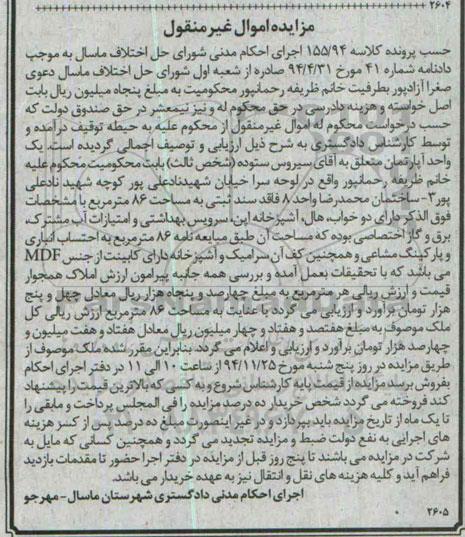 ۲۶۰۴
مزایده اموال غیر منقول
حسب پرونده کلاسه ۱۵۵/۹۴ اجرای احکام مدنی شورای حل اختلاف ماسال به موجب
دادنامه شماره ۴۱ مورخ ۹۴/۴/۳۱ صادره از شعبه اول شورای حل اختلاف ماسال دعوی
صغرا آزادپور بطرفیت خانم ظریفه رحمانپور محکومیت به مبلغ پنجاه میلیون ریال بابت
اصل خواسته و هزینه دادرسی در حق محکوم له و نیز نیمعشر در حق صندوق دولت که
حسب درخواست محکوم له اموال غیرمنقول از محکوم علیه به حیطه توقیف درآمده و
توسط کارشناس دادگستری به شرح ذیل ارزیابی و توصیف اجمالی گردیده است. یک
واحد آپارتمان متعلق به آقای سیروس ستوده (شخص ثالث) بابت محکومیت محکوم علیه
خانم ظریفه رحمانپور واقع در لوحه سرا خیابان شهیدنادعلی پور کوچه شهید نادعلی
پور۳- ساختمان محمدرضا واحد ۸ فاقد سند ثبتی به مساحت ۸۶ مترمربع با مشخصات
فوق الذکر دارای دو خواب، هال، آشپزخانه اپن، سرویس بهداشتی و امتیازات آب مشترک،
برق و گاز اختصاصی بوده که مساحت آن طبق مبایعه نامه ۸۶ مترمربع به احتساب انباری
و پارکینگ مشاعی و همچنین کف آن سرامیک و آشپزخانه دارای کابینت از جنس MDF
می باشد که با تحقیقات بعمل آمده و بررسی همه جانبه پیرامون ارزش املاک همجوار
قیمت و ارزش ریالی هر مترمربع به مبلغ چهارصد و پنجاه هزار ریال معادل چهل و پنج
هزار تومان برآورد و ارزیابی می گردد با عنایت به مساحت ۸۶ مترمربع ارزش ریالی کل
ملک موصوف به مبلغ هفتصد و هفتاد و چهار میلیون ریال معادل هفتاد و هفت میلیون و
چهارصد هزار تومان برآورد و ارزیابی و اعلام می گردد. بنابراین مقرر شده ملک موصوف از
طریق مزایده در روز پنج شنبه مورخ ۹۴/۱۱/۲۵ از ساعت ۱۰ الی ۱۱ در دفتر اجرای احکام
بفروش برسد مزایده از قیمت پایه کارشناس شروع و به کسی که بالاترین قیمت را پیشنهاد
کند فروخته می گردد شخص خریدار ده درصد مزایده را فی المجلس پرداخت و مابقی را
تا یک ماه از تاریخ مزایده باید بپردازد و در غیر اینصورت مبلغ ده درصد پس از کسر هزینه
های اجرایی به نفع دولت ضبط و مزایده تجدید می گردد و همچنین کسانی که مایل به
شرکت در مزایده می باشند تا پنج روز قبل از مزایده در دفتر اجرا حضور تا مقدمات بازدید
فراهم آید و کلیه هزینه های نقل و انتقال نیز به عهده خریدار می باشد.
اجرای احکام مدنی دادگستری شهرستان ماسال - مهرجو
۲۶۰۵